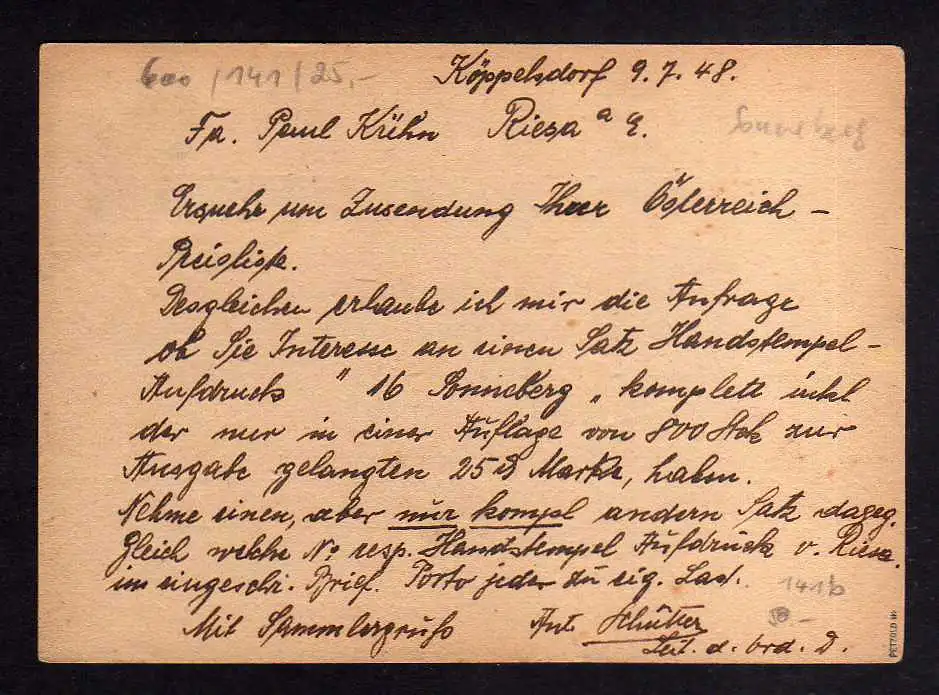 600/141/25,-
Köppelsdorf 9.7.48.
Fa. Paul Kühn Riesa a E.
Sonneberg
Ersuche um Zusendung Ihrer Österreich-
Preisliste.
Desgleichen erlaube ich mir die Anfrage
ob Sie Interesse an einen Satz Handstempel-
Aufdruck " 16 Sonneberg „ komplett inkl
der nur in einer Auflage von 800 Stck zur
Ausgabe gelangten 25 ₰ Marke, haben.
Nehme einen, aber nur kompl andern Satz dageg.
Gleich welche No resp. Handstempel Aufdruck v. Riesa.
im eingeschr. Brief. Porto jeder zu eig. Last.
141b
50.-
Mit Sammlergruß Ant. Schütter
d. ord. D.
PETZOLD